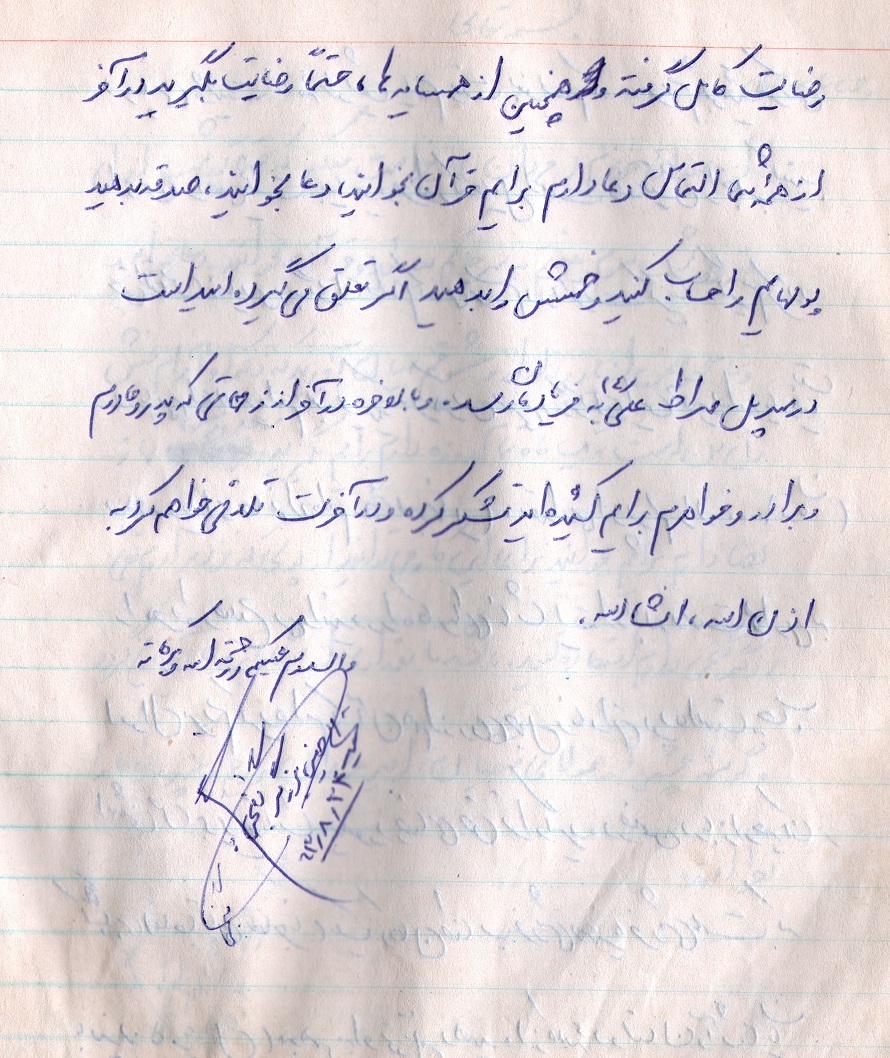 رضایت کامل گرفته و همچنین از همسایه ها، حتماً رضایت بگیرید در آخر
از همه شما التماس دعا دارم برایم قرآن بخوانید، دعا بخوانید، صدقه بدهید
پولهایم را حساب کنید و خمسش را بدهید اگر تعلق می گیرد امید است
در سر پل صراط علی (ع) به فریادمان رسد. و بالاخره در آخر از زحماتی که پدر و مادرم
و برادر و خواهرم برایم کشیده اید تشکر کرده و در آخرت تلافی خواهم کرد به
اذن الله، انشاءالله.
والسلام علیکم و رحمة الله و برکاته
۶۳/۸/۲۴